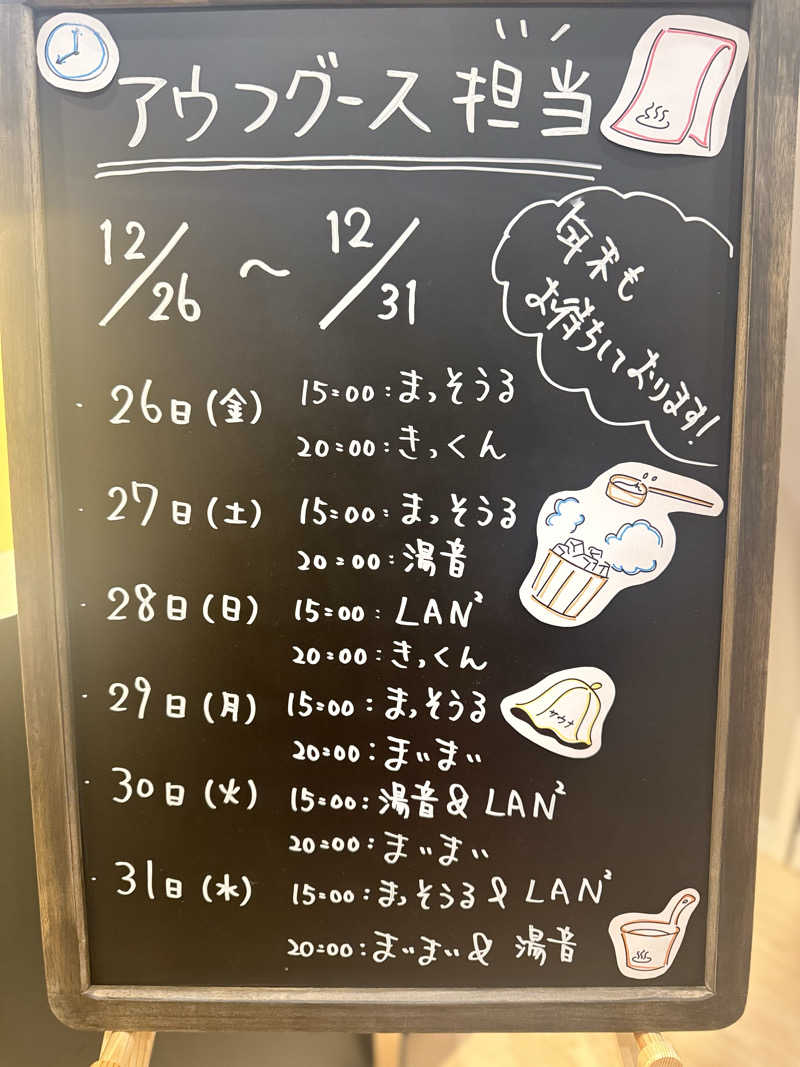 アウフグース担当
12/26 ~ 12/31
年末も
お待ちしております!
・26日(金) 15:00:まっそうる
20:00:きっくん
・27日(土) 15:00:まっそうる
20:00:湯音
・28日(日) 15:00:LAN²
20:00:きっくん
・29日(月) 15:00:まっそうる
20:00:まぃまぃ
・30日(火) 15:00:湯音&LAN²
20:00:まぃまぃ
・31日(水) 15:00:まっそうる&LAN²
20:00:まぃまぃ& 湯音
サウナ